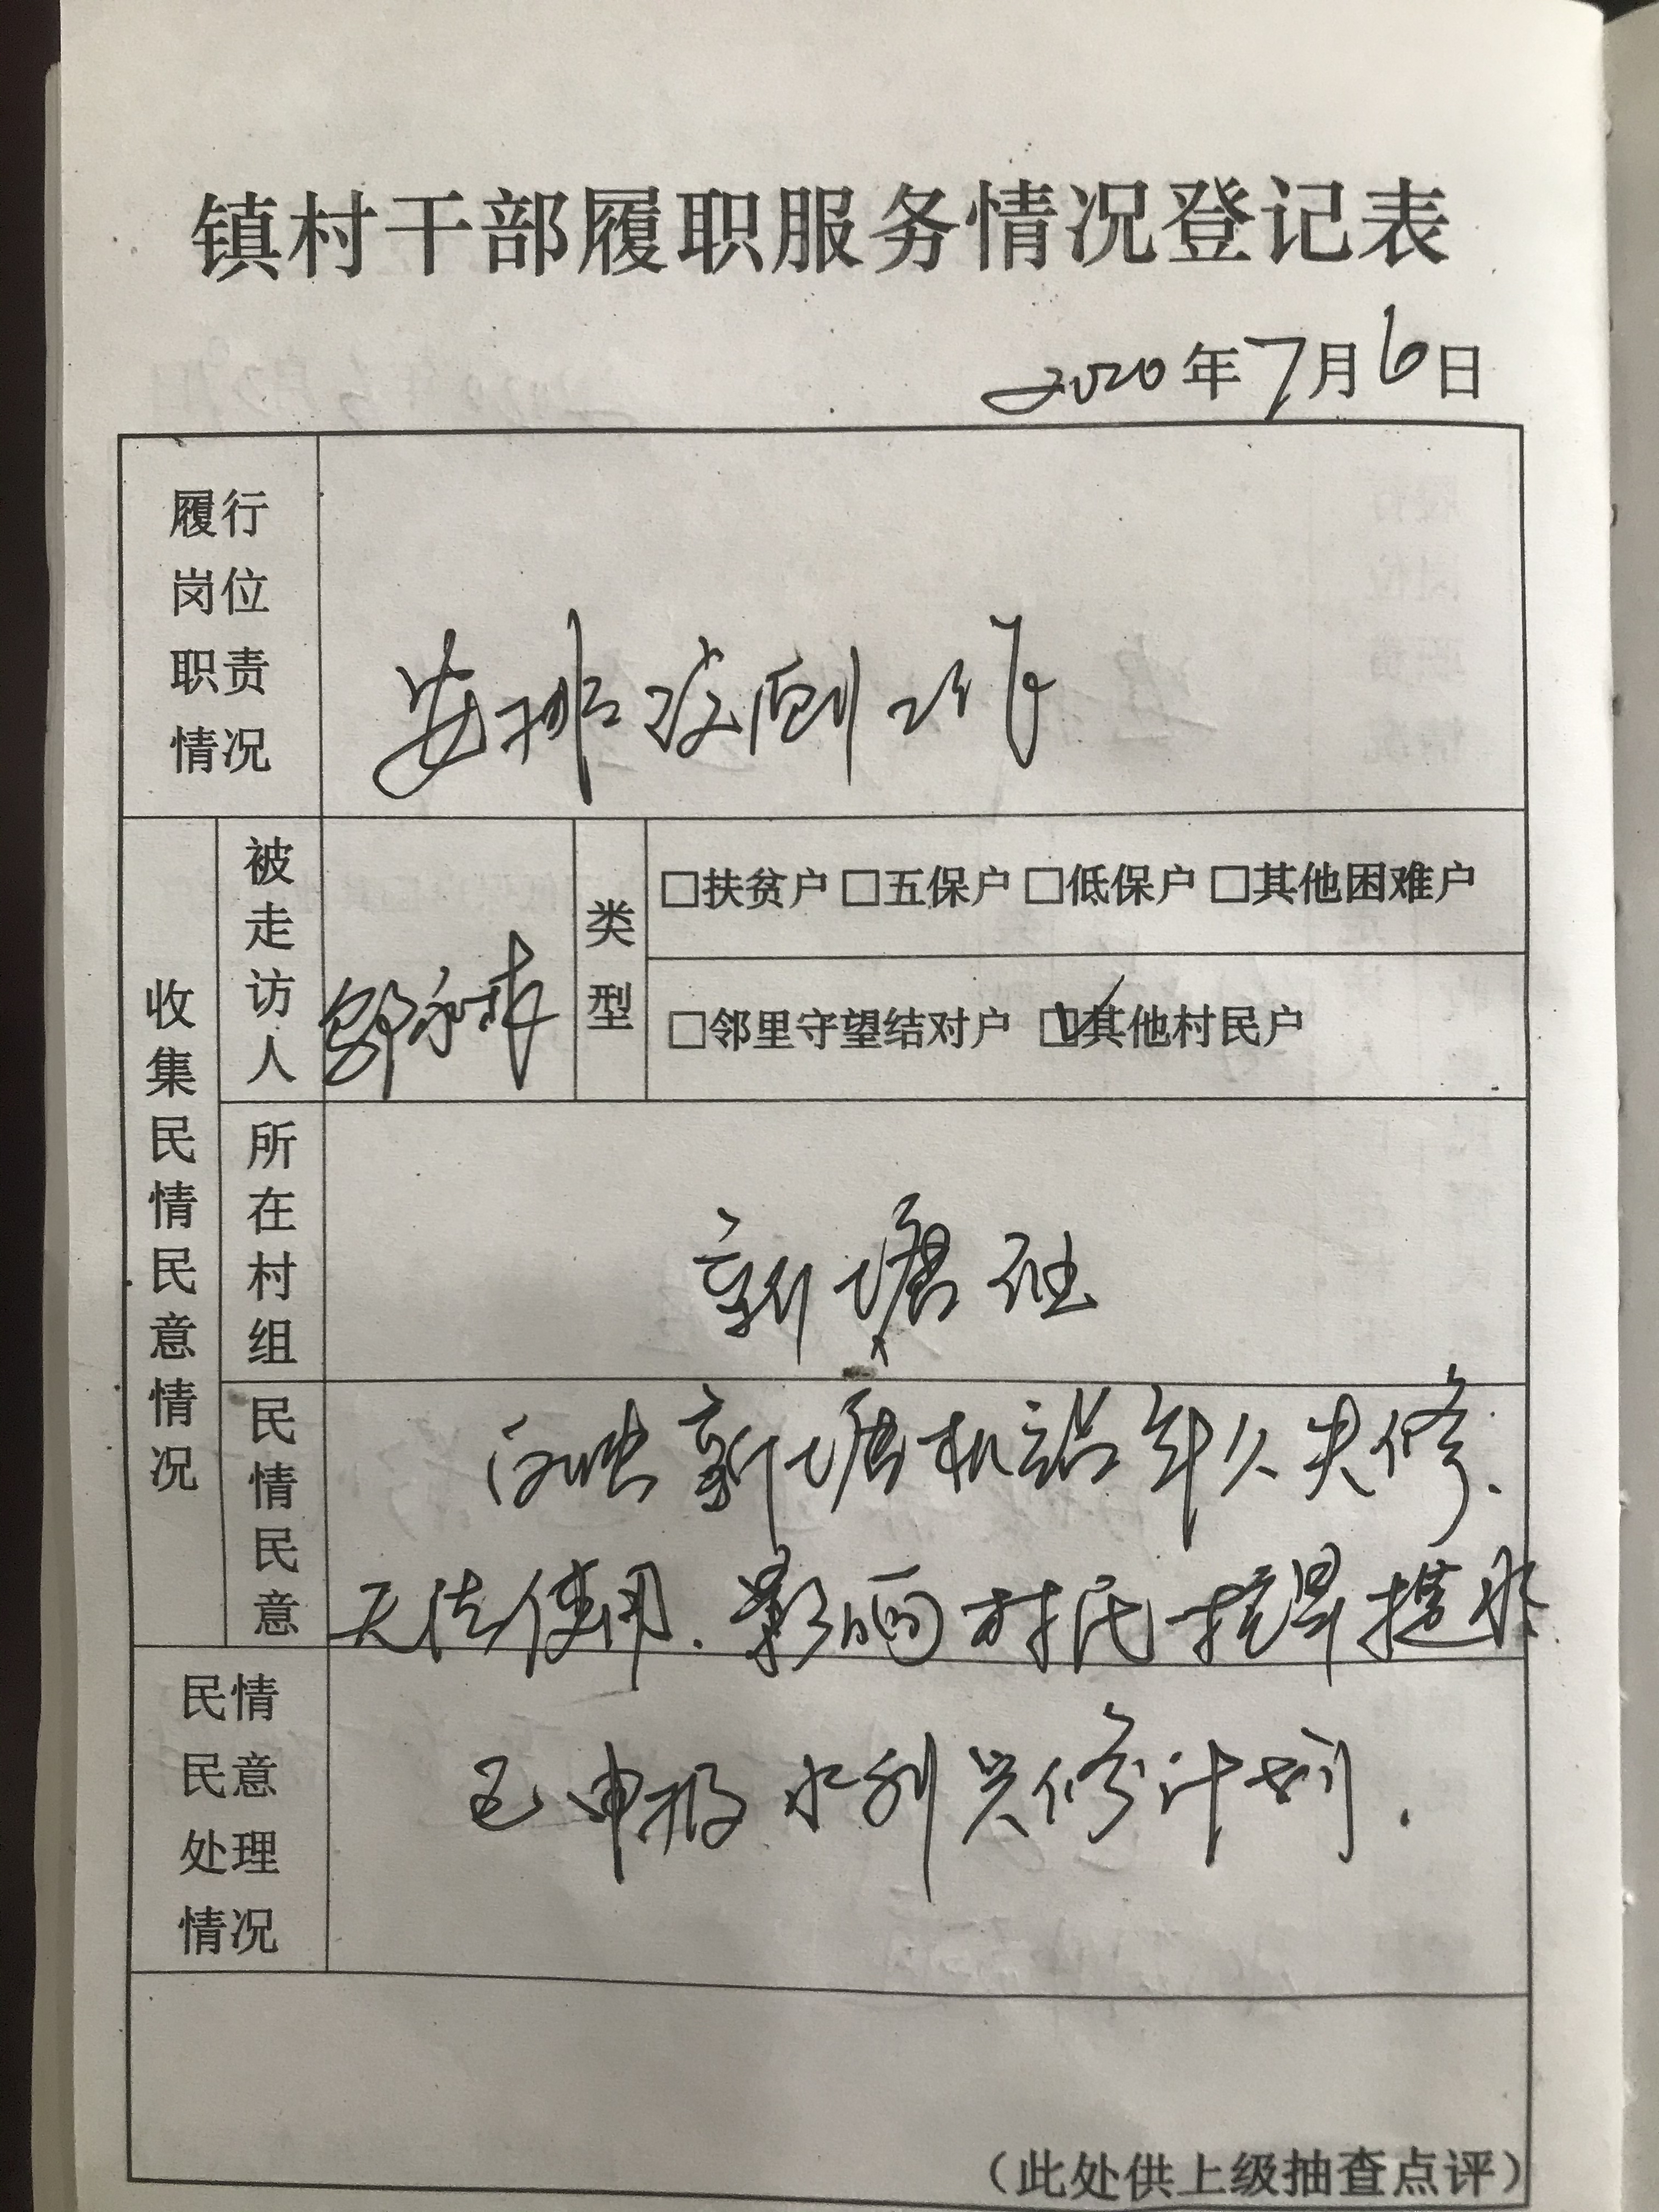 镇村干部履职服务情况登记表
2020年7月6日
履行
岗位
职责
情况
安排 工作
收集民情民意情况
被走访人
类型
□扶贫户 □五保户 □低保户 □其他困难户
□邻里守望结对户 ☑其他村民户
所在村组
新塘
民情民意
反映新塘机站年久失修.
无法使用.影响村民抗旱提水
民情
民意
处理
情况
已申报水利兴修计划.
（此处供上级抽查点评）